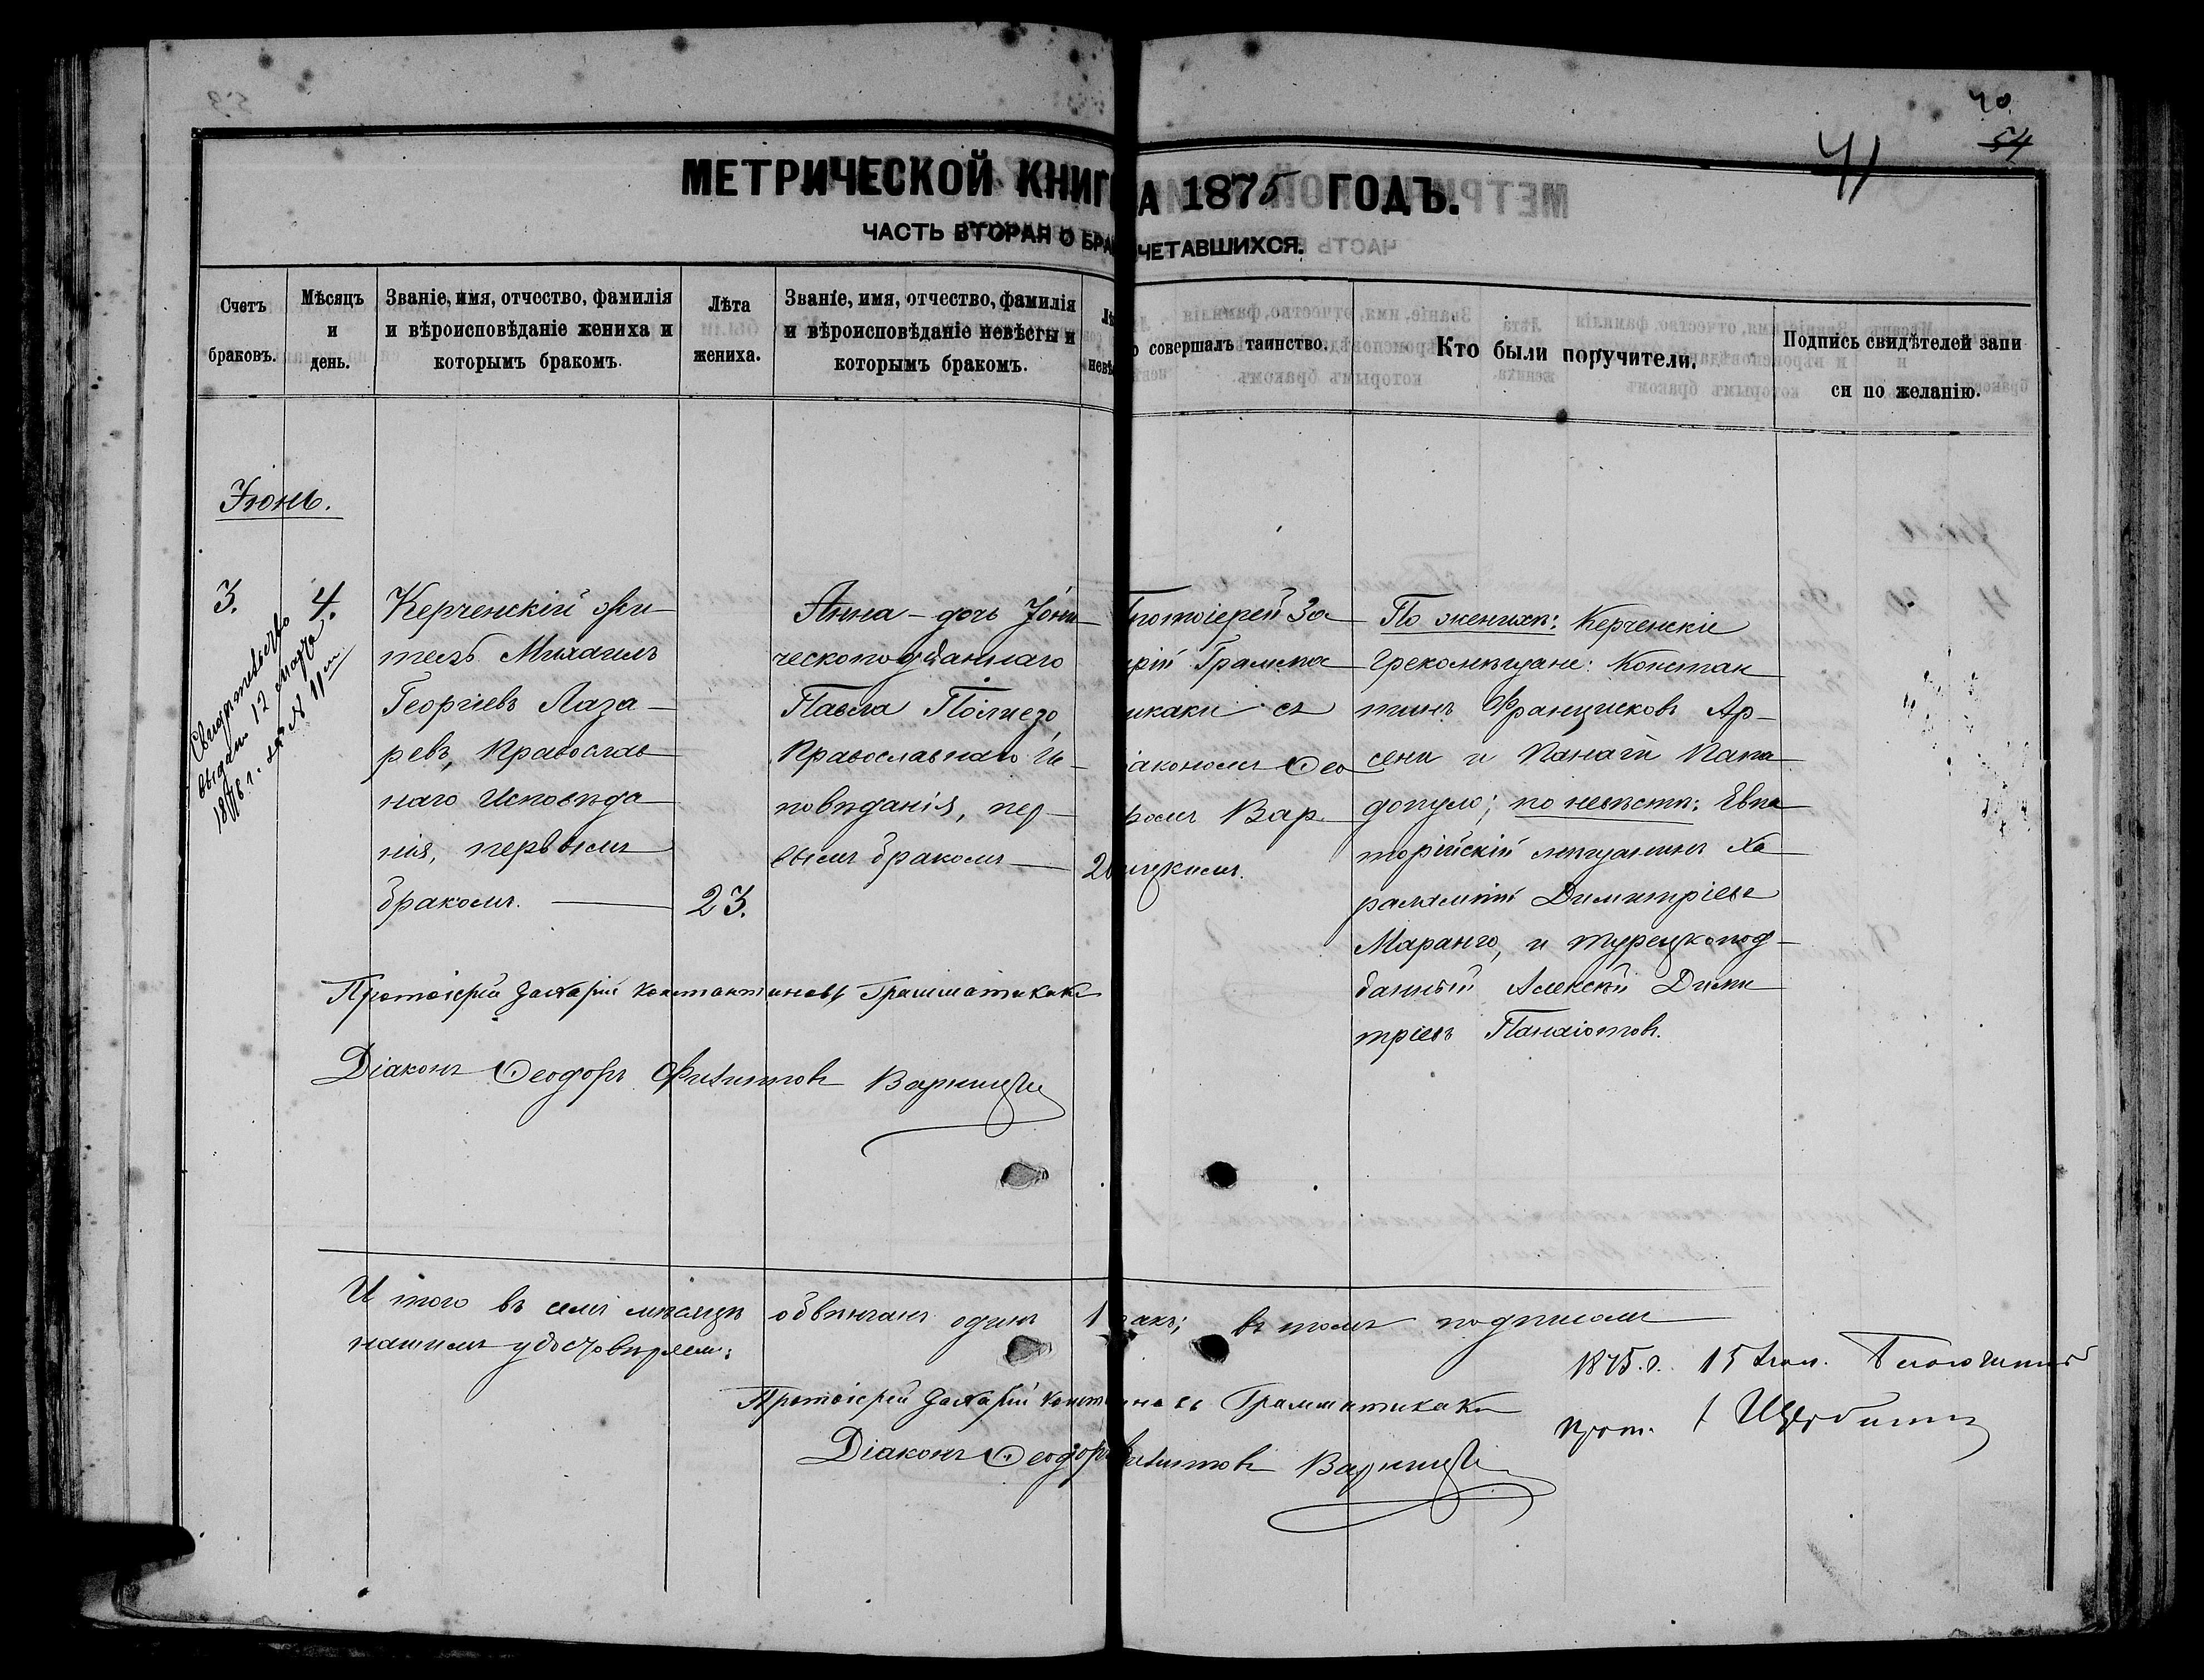 40
54
41
МЕТРИЧЕСКОЙ КНИГ А 1875 ГОДЪ.
ЧАСТЬ ВТОРАЯ О БРА ЧЕТАВШИХСЯ.
Счетъ браковъ.
Мѣсяцъ и день.
Званіе, имя, отчество, фамилія и вѣроисповѣданіе жениха и которымъ бракомъ.
Лѣта жениха.
Званіе, имя, отчество, фамилія и вѣроисповѣданіе невѣсты и которымъ бракомъ.
совершалъ таинство.
Кто были поручители.
Подпись свидѣтелей запи
си по желанію.
Іюнь.
3.
4.
Свидѣтельство
выдано 12 марта
1876 г. за № 11м
Керченскій жи-
тель Михаилъ
Георгіевъ Лаза-
ревъ, Православ
наго Исповѣда
нія, первымъ
бракомъ.
23.
Анна - дочь Іони
ческоподданнаго
Павла
Православнаго Ис-
повѣданія, пер-
вымъ бракомъ
2
ротоіерей За
арій Грамма
икаки съ
іакономъ Ѳео
ромъ Вар
ицкимъ.
По женихѣ: Керченскіе
Грекомѣщане: Констан
тинъ Францисковъ Ар-
сени и Панагій Папа
допуло; по невѣстѣ: Евпа
торійскій мѣщанинъ Ха
рампій Димитріевъ
Маранго, и турецкопод-
данный Алексѣй Дими
тріевъ Панаіотовъ.
Протоіерей Захарій Константиновъ Грамматикаки
Діаконъ Ѳеодоръ Филиповъ Варницкій
И того въ семъ мѣсяцѣ обвѣнчанъ одинъ 1 ракъ; въ томъ подписомъ
нашимъ удостовѣряемъ:
Протоіерей Захарій Конст инов Грамматикаки
Діаконъ Ѳеодоръ илиповъ Варницкій
1875. г. 15 Благочинный
Прот. Щербина